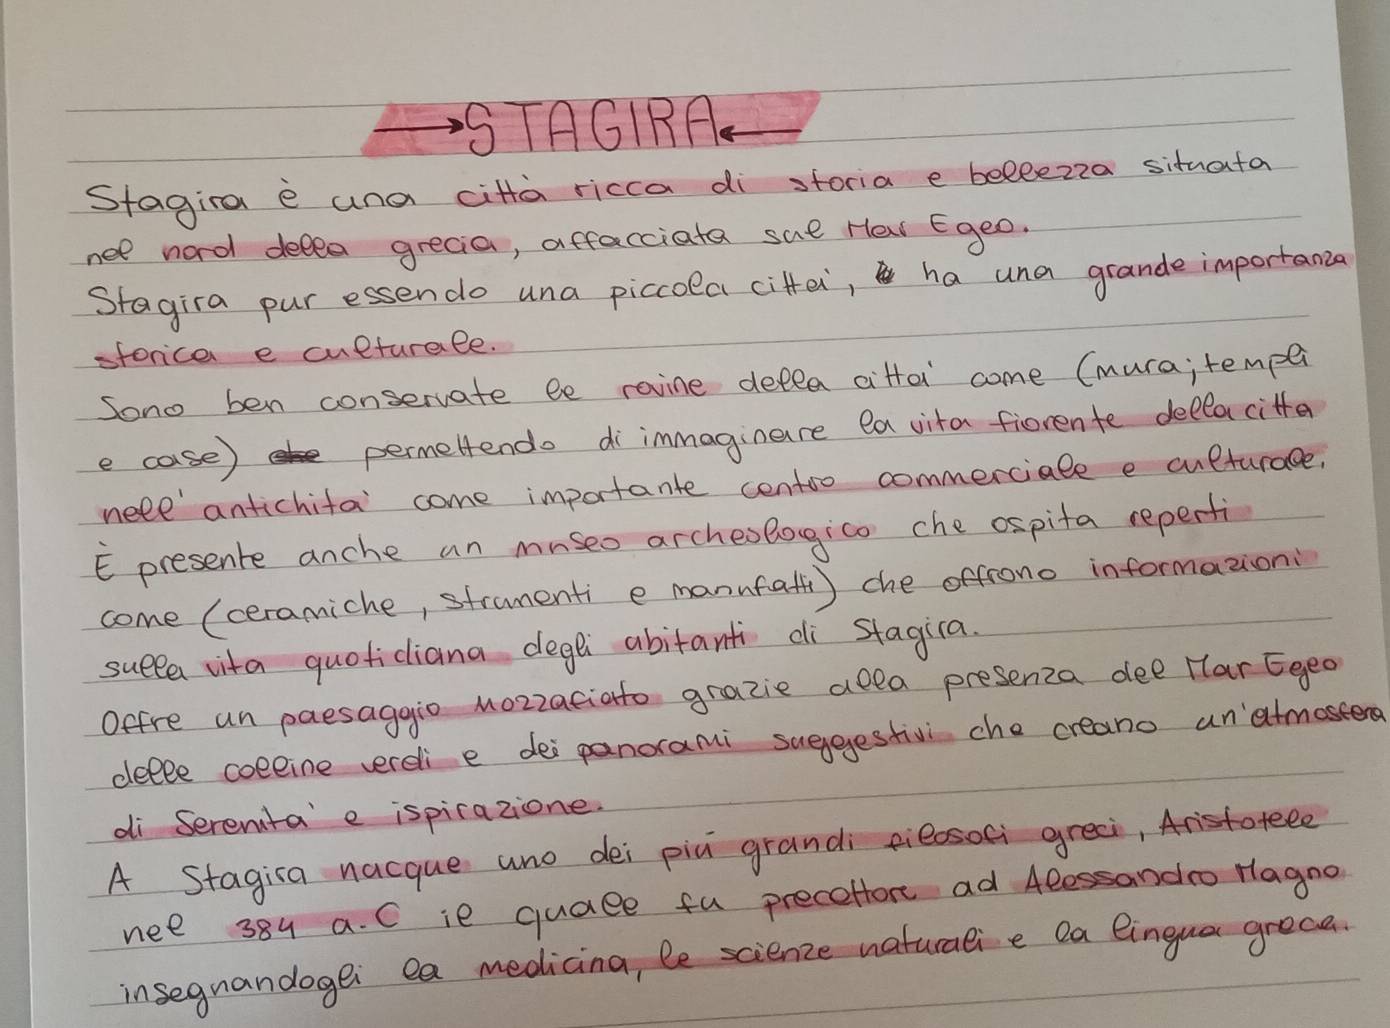 →STAGIRA←
Stagira è una città ricca di storia e bellezza situata
nel nord della grecia, affacciata sul Mar Egeo.
Stagira pur essendo una piccola città, ha una grande importanza
storica e culturale.
Sono ben conservate le rovine della città come (mura; templi
e case) che permettendo di immaginare la vita fiorente della citta
nell'antichità come importante centro commerciale e culturale.
È presente anche un museo archeologico che ospita reperti
come (ceramiche, strumenti e manufatti) che offrono informazioni
sulla vita quotidiana degli abitanti di Stagira.
Offre un paesaggio mozzafiato grazie alla presenza del Mar Egeo
delle colline verdi e dei panorami suggestivi che creano un'atmosfera
di Serenità e ispirazione.
A Stagira nacque uno dei più grandi filosofi greci, Aristotele
nel 384 a.C il quale fu precettore ad Alessandro Magno
insegnandogli la medicina, le scienze naturali e la lingua greca.